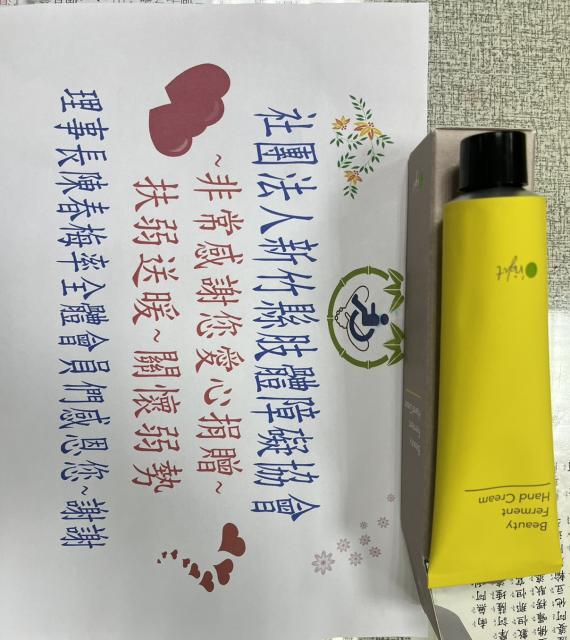 社團法人新竹縣肢體障礙協會
~非常感謝您愛心捐贈~
扶弱送暖~關懷弱勢
理事長陳春梅率全體會員們感恩您~謝謝
Oright
Beauty
Ferment
Hand Cream
Beauty
Ferment
Hand Cream